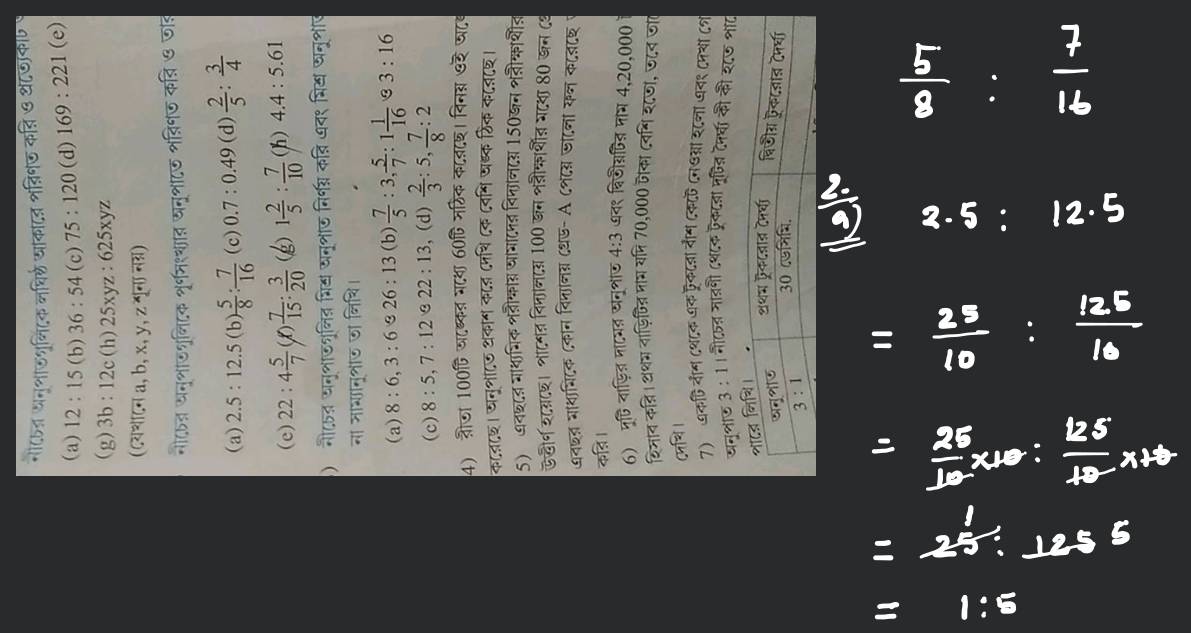 নীচের অনুপাতগুলিকে লঘিষ্ঠ আকারে পরিণত করি ও প্রত্যেকটি
(a) 12 : 15 (b) 36 : 54 (c) 75 : 120 (d) 169 : 221 (e)
(g) 3b : 12c (h) 25xyz : 625xyz
(যেখানে a, b, x, y, z শূন্য নয়)
নীচের অনুপাতগুলিকে পূর্ণসংখ্যার অনুপাতে পরিণত করি ও তার
(a) 2.5 : 12.5 (b) 5/8 : 7/16 (c) 0.7 : 0.49 (d) 2/5 : 3/4
(e) 22 : 4 5/7 (f) 7/15 : 3/20 (g) 1 2/5 : 7/10 (h) 4.4 : 5.61
) নীচের অনুপাতগুলির মিশ্র অনুপাত নির্ণয় করি এবং মিশ্র অনুপাত
না সাম্যানুপাত তা লিখি।
(a) 8 : 6, 3 : 6 ও 26 : 13 (b) 7/5 : 3, 5/7 : 1 1/16 ও 3 : 16
(c) 8 : 5, 7 : 12 ও 22 : 13, (d) 2/3 : 5, 7/8 : 2
4) রীতা 100টি অঙ্কের মধ্যে 60টি সঠিক করেছে। বিনয় ওই অঙ্কে
করেছে। অনুপাতে প্রকাশ করে দেখি কে বেশি অঙ্ক ঠিক করেছে।
5) এবছরে মাধ্যমিক পরীক্ষায় আমাদের বিদ্যালয়ে 150জন পরীক্ষার্থীর
উত্তীর্ণ হয়েছে। পাশের বিদ্যালয়ে 100 জন পরীক্ষার্থীর মধ্যে 80 জন
এবছর মাধ্যমিকে কোন বিদ্যালয় গ্রেড- A পেয়ে ভালো ফল করেছে
করি।
6) দুটি বাড়ির দামের অনুপাত 4:3 এবং দ্বিতীয়টির দাম 4,20,000
হিসাব করি। প্রথম বাড়িটির দাম যদি 70,000 টাকা বেশি হতো, তবে
দেখি।
7) একটি বাঁশ থেকে এক টুকরো বাঁশ কেটে নেওয়া হলো এবং দেখা
অনুপাত 3 : 1। নীচের সারণী থেকে টুকরো দুটির দৈর্ঘ্য কী কী হতে
পারে লিখি।
অনুপাত প্রথম টুকরোর দৈর্ঘ্য দ্বিতীয় টুকরোর দৈর্ঘ্য
3 : 1 30 ডেসিমি.
5/8 : 7/16
2. a) 2.5 : 12.5
= 25/10 : 125/10
= 25/10 × 10 : 125/10 × 10
= 25 1 : 125 5
= 1:5